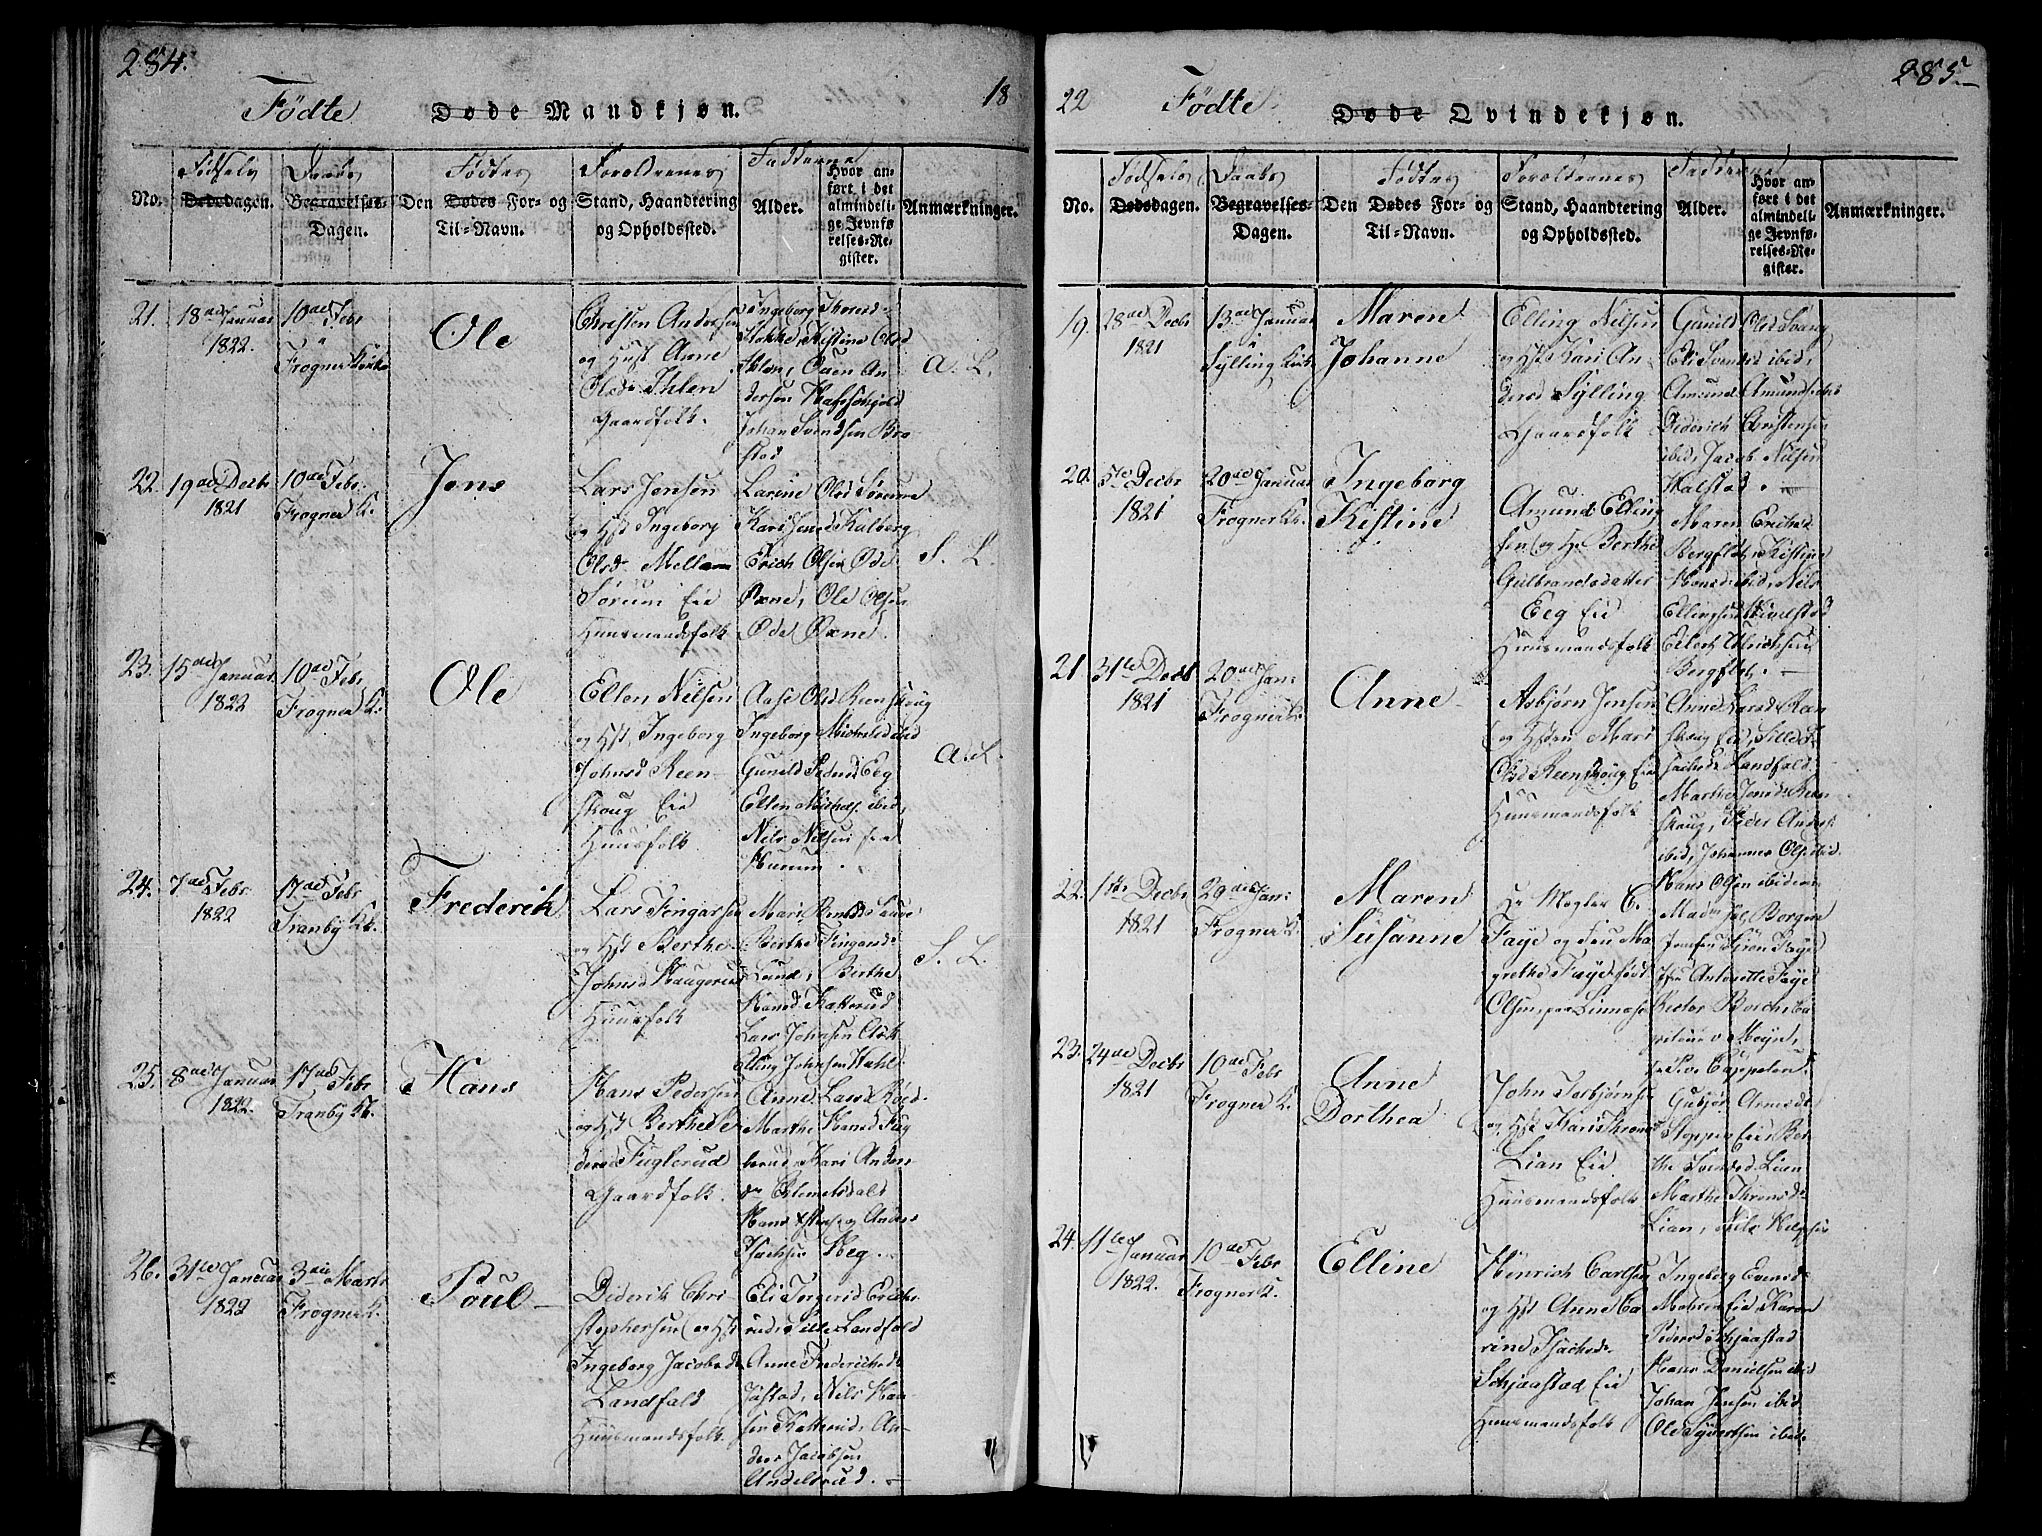 284.
Födte Døde Mandkjøn.
18
No.
Fødsels Dødsdagen.
Daabs Begravelses-Dagen.
Den Fødtes Dødes For- og Til-Navn.
Foreldrenes Stand, Haandtering og Opholdssted.
Fadderne
Alder.
Hvor anført i det almindelige Jevnførelses-Register.
Anmærkninger.
21.
18de Januar
1822.
10de Febr
i
Frogner Kirke
Ole
Christen Anders
og Hust Anne
Olsd Ihlen
Gaardfolk.
Ingeborg Thoresd
Stokke, Kistine Olsd
Ihlen, Owen An-
dersen Kafsøkjold
Johan Svendsen Bra-
stad
a. L.
22.
19de Decbr
1821
10de Febr
Frogner K.
Jens
Lars Jensen
og Hst Ingeborg
Olsd Mellem
Sørum Eie
Huusmandsfolk
Larine Olsd Sørum
Kari Jensd Kalberg
Erich Olsen Øde
Øxne, Ole Olsen
Øde Øxne.
S. L.
23.
15de Januar
1822
10de Febr
Frogner K.
Ole
Ellen Nilsen
og Hst, Ingeborg
Johnsd Reen-
skoug Eie
Huusfolk
Aase Olsd Reenskoug
Ingeborg Michelsd ibid
Gunild Pedersd Eeg
Elten Michels. ibid,
Nils Nilsen fra
Hurum.
a. L.
24.
7de Febr
1822
17de Febr
Tranby K.
Frederik
Lars Fingarsen
og Hst Berthe
Johnsd Haugerud
Huusfolk
Mari
Berthe Fingarsd
Lund, Berthe
Hansd Katterud
Lars Johnsen Ask
Elling Johnsen Wahl
S. L.
25.
8de Januar
1822.
17de Febr
Tranby K.
Hans
Hans Pedersen
og Hst Berthe Pe-
dersd Fuglerud
Gaardfolk.
Anne Larsd Rød
Marthe Hansd Fug
lerud, Kari Anders
dr Clemetsdal
Hans og Anders
Isachsen Heg.
26.
31te Januar
1822
3die Marts
Frogner K.
Poul
Diderik Chri-
stophersen og Hst
Ingeborg Jacobsd
Landfald
Huusmandsfolk.
Eli Torgersd Erichs
rud, Sille Landfald
Anne Frederichsd
Justad, Nils Han-
sen Katterud, An-
ders Jacobsen
Andelsrud.
285.
22
Födte Døde Qvindekjøn.
No.
Fødsels Dødsdagen.
Daabs Begravelses-Dagen.
Den Fødtes Dødes For- og Til-Navn.
Foroldrenes Stand, Haandtering og Opholdssted.
Fadderne
Alder.
Hvor anført i det almindelige Jevnførelses-Register.
Anmærkninger.
19.
28de Decbr
1821
13de Januar
i
Sylling Kirke
Maren
Johanne
Elling Nilsen
og Hst Kari An-
dersd Sylling
Gaardfolk
Gunild Olsd Svang
Eli Svensd ibid,
Amund Amundsen
Diderich Christensen
ibid, Jacob Nilsen
Halstad.
20.
5te Decbr
1821
20de Januar
Frogner K.
Ingeborg
Kistine
Amund Elling
sen og Hu Berthe
Gulbrandsdatter
Eeg Eie
Huusmandsfolk
Maren Erichsd
Bergflet, Kistine
Hansd ibid, Nils
Ellingsen
Ellert Ulrichsen
Bergflet.
21
31te Decbr
1821
20de Jan:
Frogner K.
Anne
Asbjørn Jensen
og Hsten Mari
Olsd Reenskoug Eie
Huusmandsfolk
Anne Larsd Reen
skoug Eie, Sille I-
sachsd Landfald
Marthe Jensd Reen
skoug, Peder Anders
ibid, Johannes Ols ibid.
22.
1ste Decbr
1821
29de Jan:
Frogner K.
Maren
Susanne
Hr Megler C.
Faye og Fru Ma
grethe Faye født
Olsen paa Linnæs
Hans Olsen ibidem
Borgen
Jomfru Faye
Jfru Antonette Faye
Rector Borch
v Meyn,
P. Cappelen.
23.
24de Decbr
1821
10de Febr
Frogner K.
Anne
Dorthea
John Torbjørns
og Hst Kari Thronsd
Lian Eie
Huusmandsfolk
Gubjør Arnesdr
Stoppen Eie, Ber
the Svensd Lian
Marthe Thronsd
Lian, Nils Helgesen
24.
11te Januar
1822.
10de Febr
Frogner K.
Elline
Hinrich Carlsen
og Hst Anne Ca
rine Isachsdr
Schjaastad Eie
Huusmandsfolk
Ingeborg Evensd
Eie, Karen
Pedersd Schjaastad
Hans Danielsen ibid
Johan Jensen ibid
Ole Syvertsen ibid.